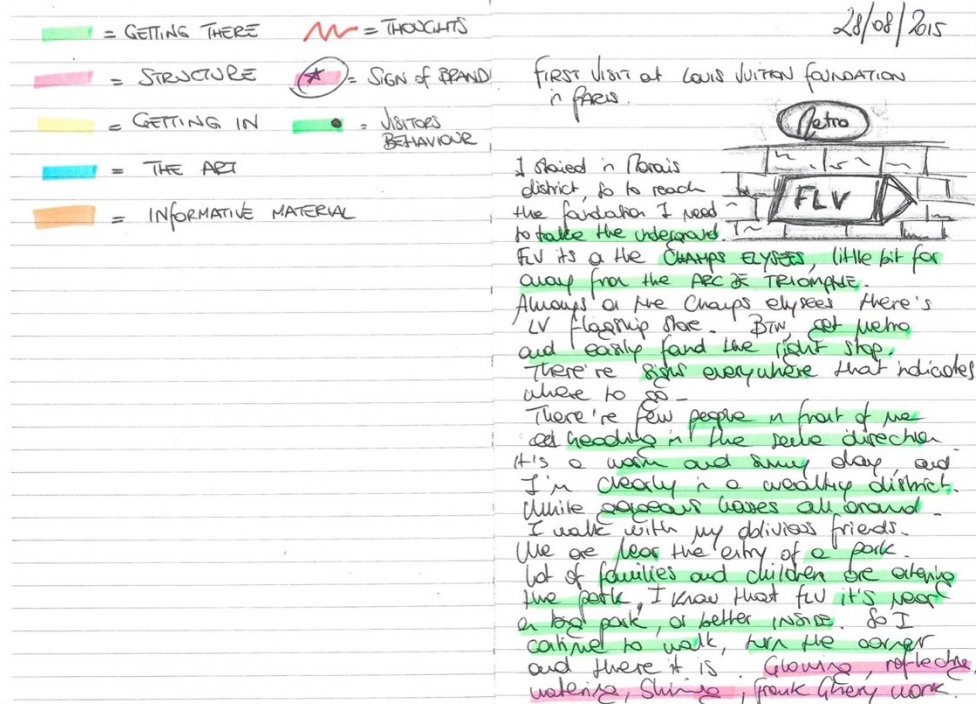 = GETTING THERE
= THOUGHTS
= STRUCTURE
= SIGN of BRAND
= GETTING IN
= VISITORS BEHAVIOUR
= THE ART
= INFORMATIVE MATERIAL
28/08/2015
FIRST VISIT at LOUIS VUITTON FOUNDATION
in PARIS.
Metro
FLV
I staied in Marais
district, so to reach
the foundation I need
to take the underground.
FLV its a the CHAMPS ELYSEES, little bit far
away from the ARC DE TRIOMPHE.
Always a the Champs elysees there's
LV flagship store. BTW, get metro
and easily found the right stop.
There're signs everywhere that indicates
where to go -
There're few people in front of me
heading in the same direction
it's a warm and sunny day, and
I'm clearly in a wealthy district.
White gorgeous houses all around -
I walk with my oblivios friends.
We are near the entry of a park.
Lot of families and children are entering
the park, I know that FLV it's near
a big park, or better INSIDE. So I
continue to walk, turn the corner
and there it is. Glowing, reflecting,
watering, Shining, Frank Ghery work.